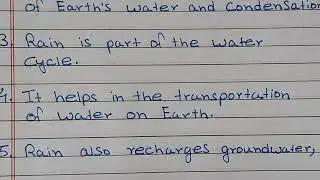 of Earth's water and Condensation
3. Rain is part of the water
cycle.
4. It helps in the transportation
of water on Earth.
5. Rain also recharges groundwater,